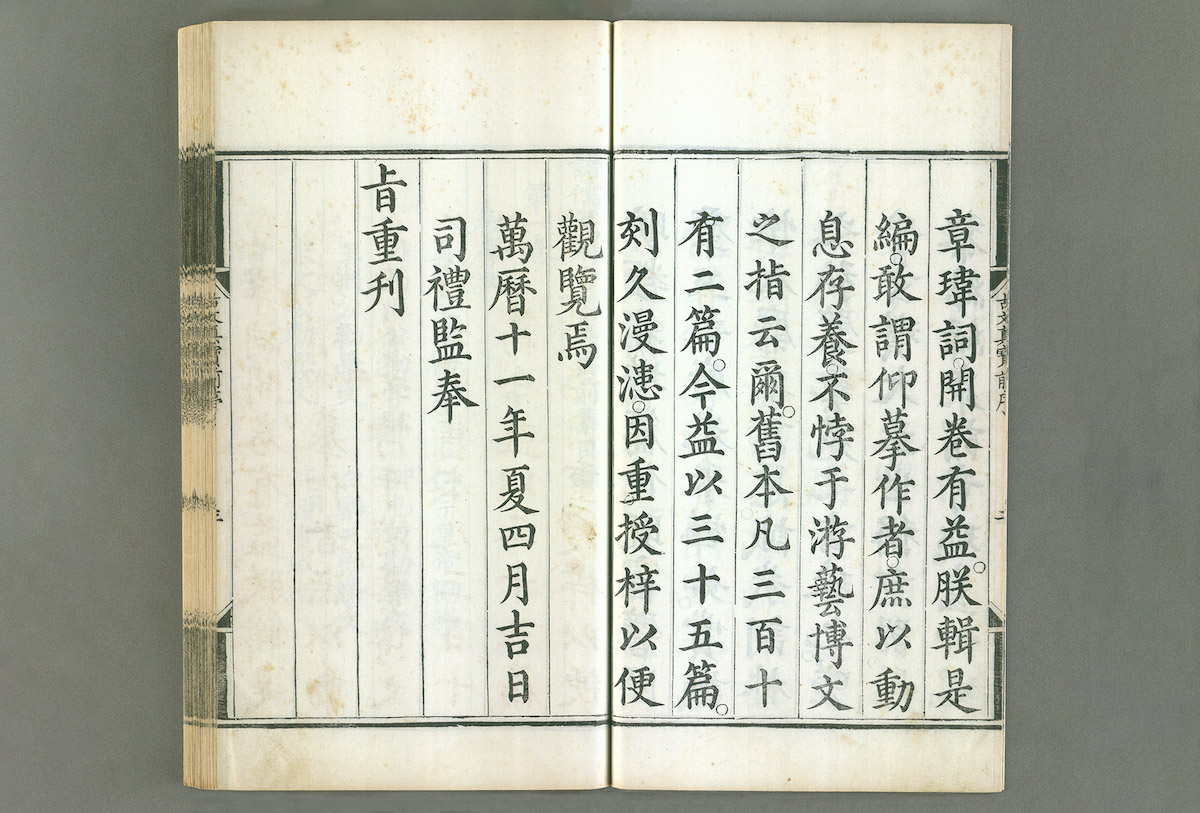 章瑋詞。開卷有益。朕輯是
編。敢謂仰摹作者。庶以動
息存養。不悖于游藝博文
之指云爾。舊本凡三百十
有二篇。今益以三十五篇。
刻久漫漶。因重授梓以便
觀覽焉
萬曆十一年夏四月吉日
司禮監奉
旨重刊
古文真寶前序
二